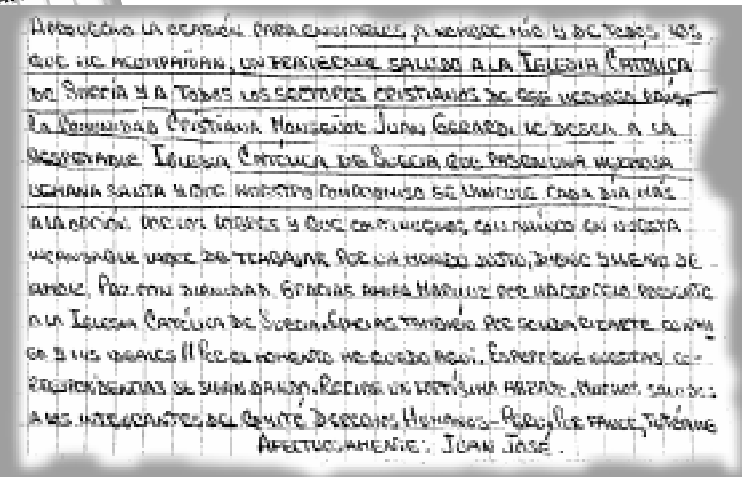 APROVECHO LA OCASIÓN PARA ENVIARLES, A NOMBRE MÍO Y DE TODOS LOS
QUE ME ACOMPAÑAN, UN FRATERNAL SALUDO A LA IGLESIA CATÓLICA
DE SUECIA Y A TODOS LOS SECTORES CRISTIANOS DE ESE HERMOSO PAÍS.
LA COMUNIDAD CRISTIANA MONSEÑOR JUAN GERARDI LE DESEA A LA
RESPETABLE IGLESIA CATÓLICA DE SUECIA QUE PASEN UNA HERMOSA
SEMANA SANTA Y QUE NUESTRO COMPROMISO SE VINCULE CADA DÍA MÁS
A LA OPCIÓN POR LOS POBRES Y QUE CONTINUEMOS CAMINANDO EN NUESTRA
INCANSABLE LABOR DE TRABAJAR POR UN MUNDO JUSTO, DIGNO Y LLENO DE
AMOR. PAZ CON DIGNIDAD. GRACIAS POR HACERTE PRESENTE
A LA IGLESIA CATÓLICA DE SUECIA. GRACIAS TAMBIÉN POR SOLIDARIZARTE CONMI-
GO Y MIS IDEALES!! POR EL MOMENTO ME QUEDO AQUÍ. ESPERO QUE NUESTRAS CO-
RRESPONDENCIAS SE SIGAN DANDO. RECIBE UN FORTÍSIMO ABRAZO. MUCHOS SALUDOS
A LOS INTEGRANTES DEL COMITÉ DERECHOS HUMANOS-PERÚ, POR FAVOR,
AFECTUOSAMENTE: JUAN JOSÉ.